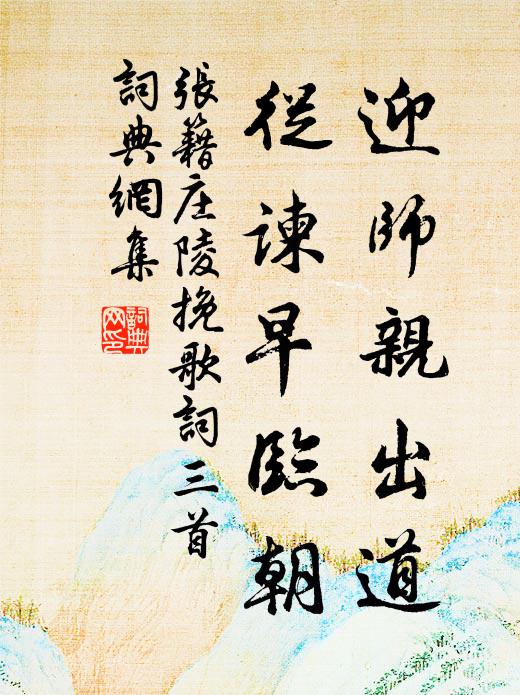 迎師親出道
從諫早臨朝
張籍庄陵挽歌詞三首
詞典網集
詞典网印